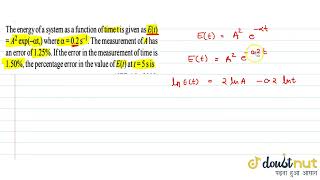 The energy of a system as a function of time t is given as E(t)
= A² exp(–αt,) where α = 0.2 s⁻¹. The measurement of A has
an error of 1.25%. If the error in the measurement of time is
1.50%, the percentage error in the value of E(t) at t = 5s is
E(t) = A² e^-αt
E(t) = A² e^-0.2t
ln E(t) = 2 ln A - 0.2 ln t
doubtnut
पढ़ना हुआ आसान